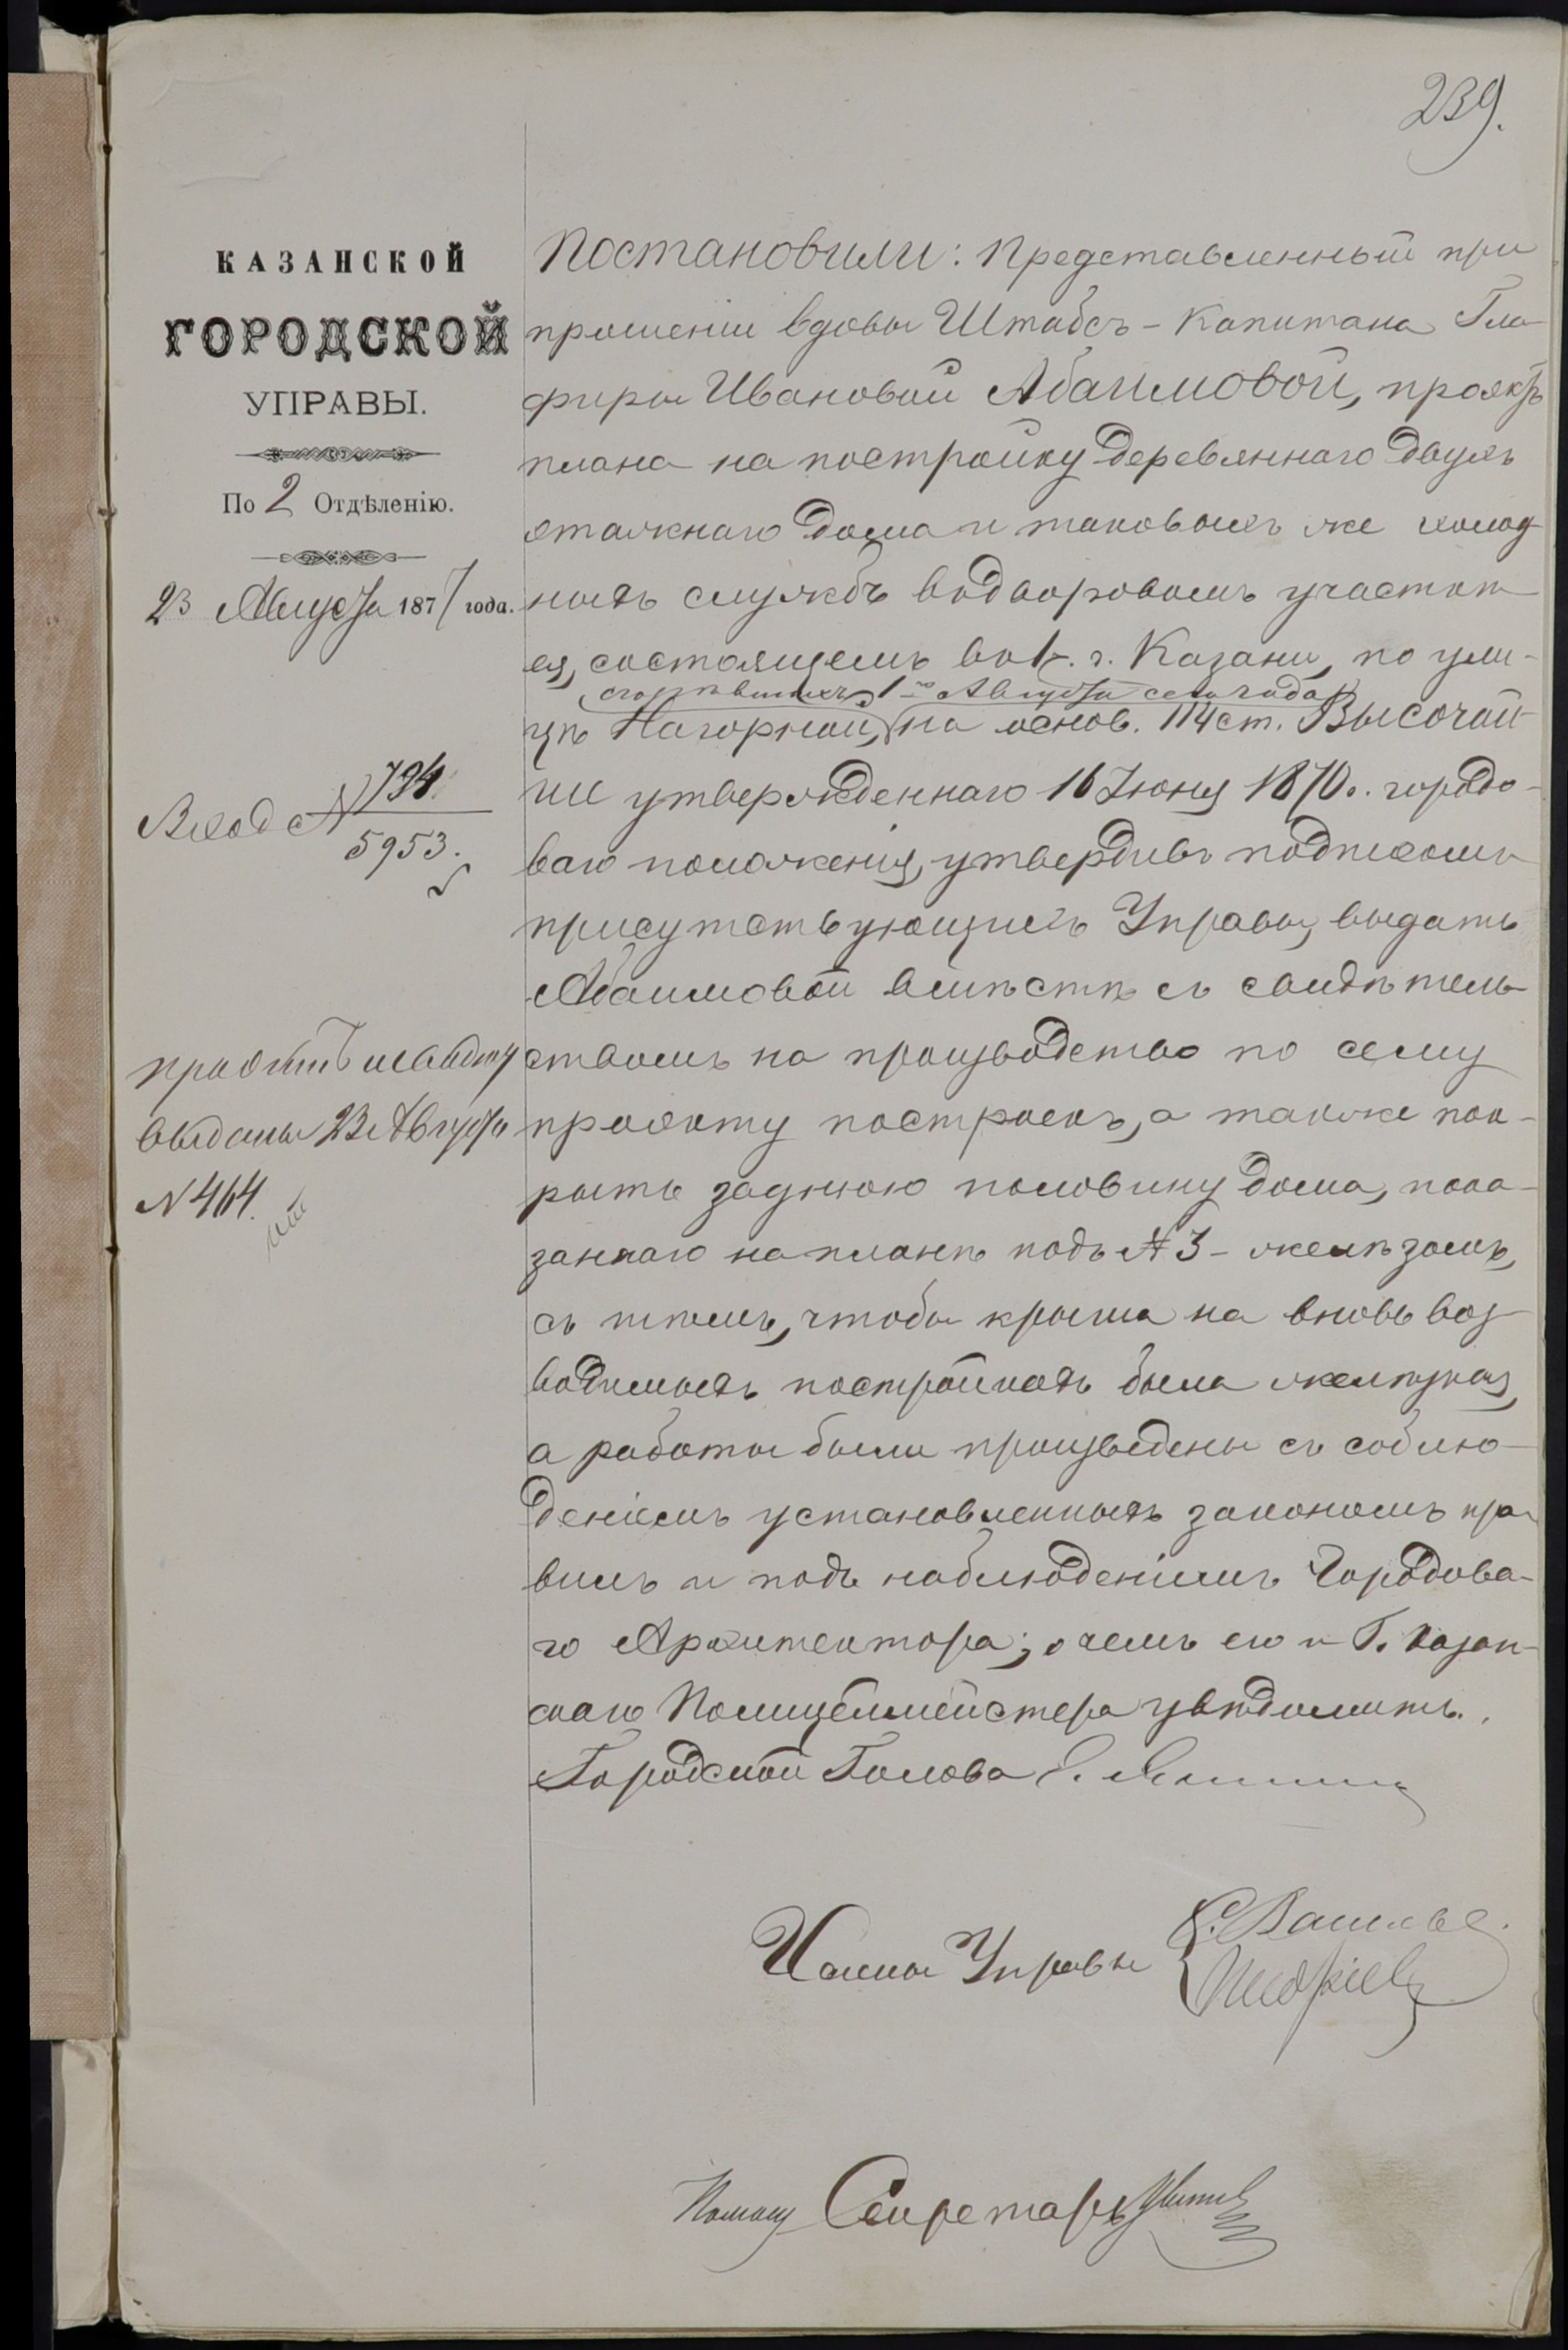 239.
КАЗАНСКОЙ
ГОРОДСКОЙ
УПРАВЫ.
По 2 Отдѣленію.
23 Августа 1877 года.
Вход №794
5953.
проэктъ и свидѣт
выданы 23 Августа
№ 464.
Постановили: Представленный при
прошеніи вдовы Штабсъ-Капитана Гла-
фиры Ивановой Абаимовой, проэктъ
плана на постройку деревяннаго двухъ
этажнаго дома и таковыхъ же холод-
ныхъ службъ в дворовомъ участкѣ
ея, состоящемъ во 1 ч. г. Казани, по ули-
сгорѣвшихъ 1го Августа сего года
цѣ Нагорной, на основ. 114 ст. Высочай-
ше утвержденнаго 16 Іюня 1870 г. городо-
ваго положенія, утвердивъ подписомъ
присутствующихъ Управы, выдать
Абаимовой вмѣстѣ съ свидѣтель-
ствомъ на производство по сему
проэкту построекъ, а также пок-
рыть заднюю половину дома, пока-
заннаго на планѣ подъ № 3 - желѣзомъ,
съ тѣмъ, чтобы крыша на вновь воз-
водимыхъ постройкахъ была желѣзная,
а работы были произведены съ соблю-
деніемъ установленныхъ закономъ пра-
вилъ и подъ наблюденіемъ Городова-
го Архитектора; о чемъ его и Г. Казан-
скаго Полицеймейстера увѣдомить.
Городской Голова
Члены Управы
Помощ Секретаря